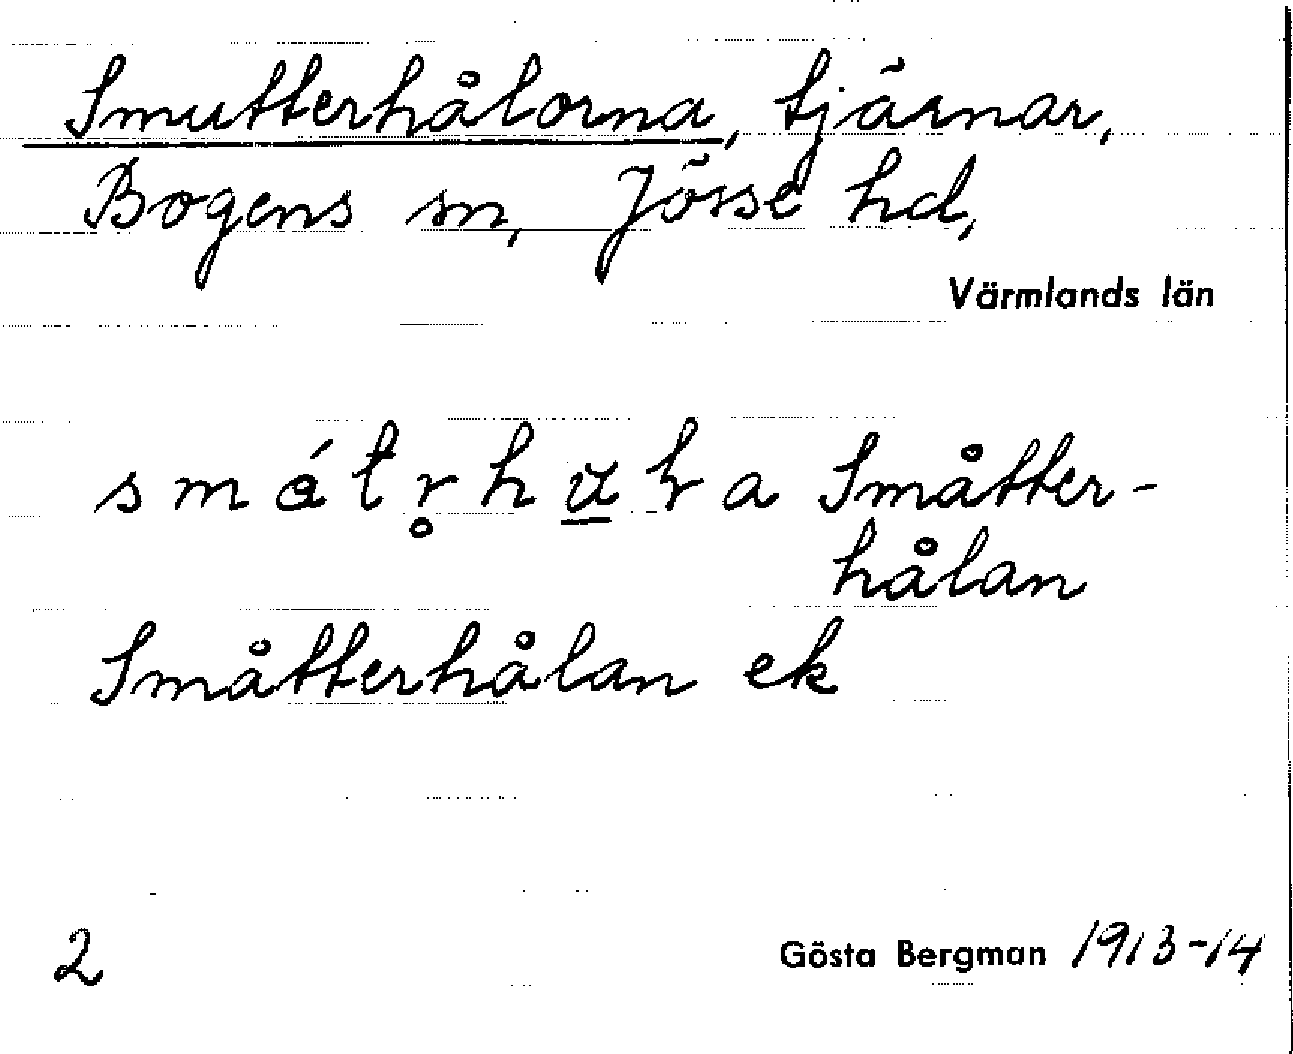 Smutterhålorna, tjärnar,
Bogens sn, Jösse hd,
Värmlands län
Småtter-
hålan
Småtterhålan ek
2
Gösta Bergman 1913-14